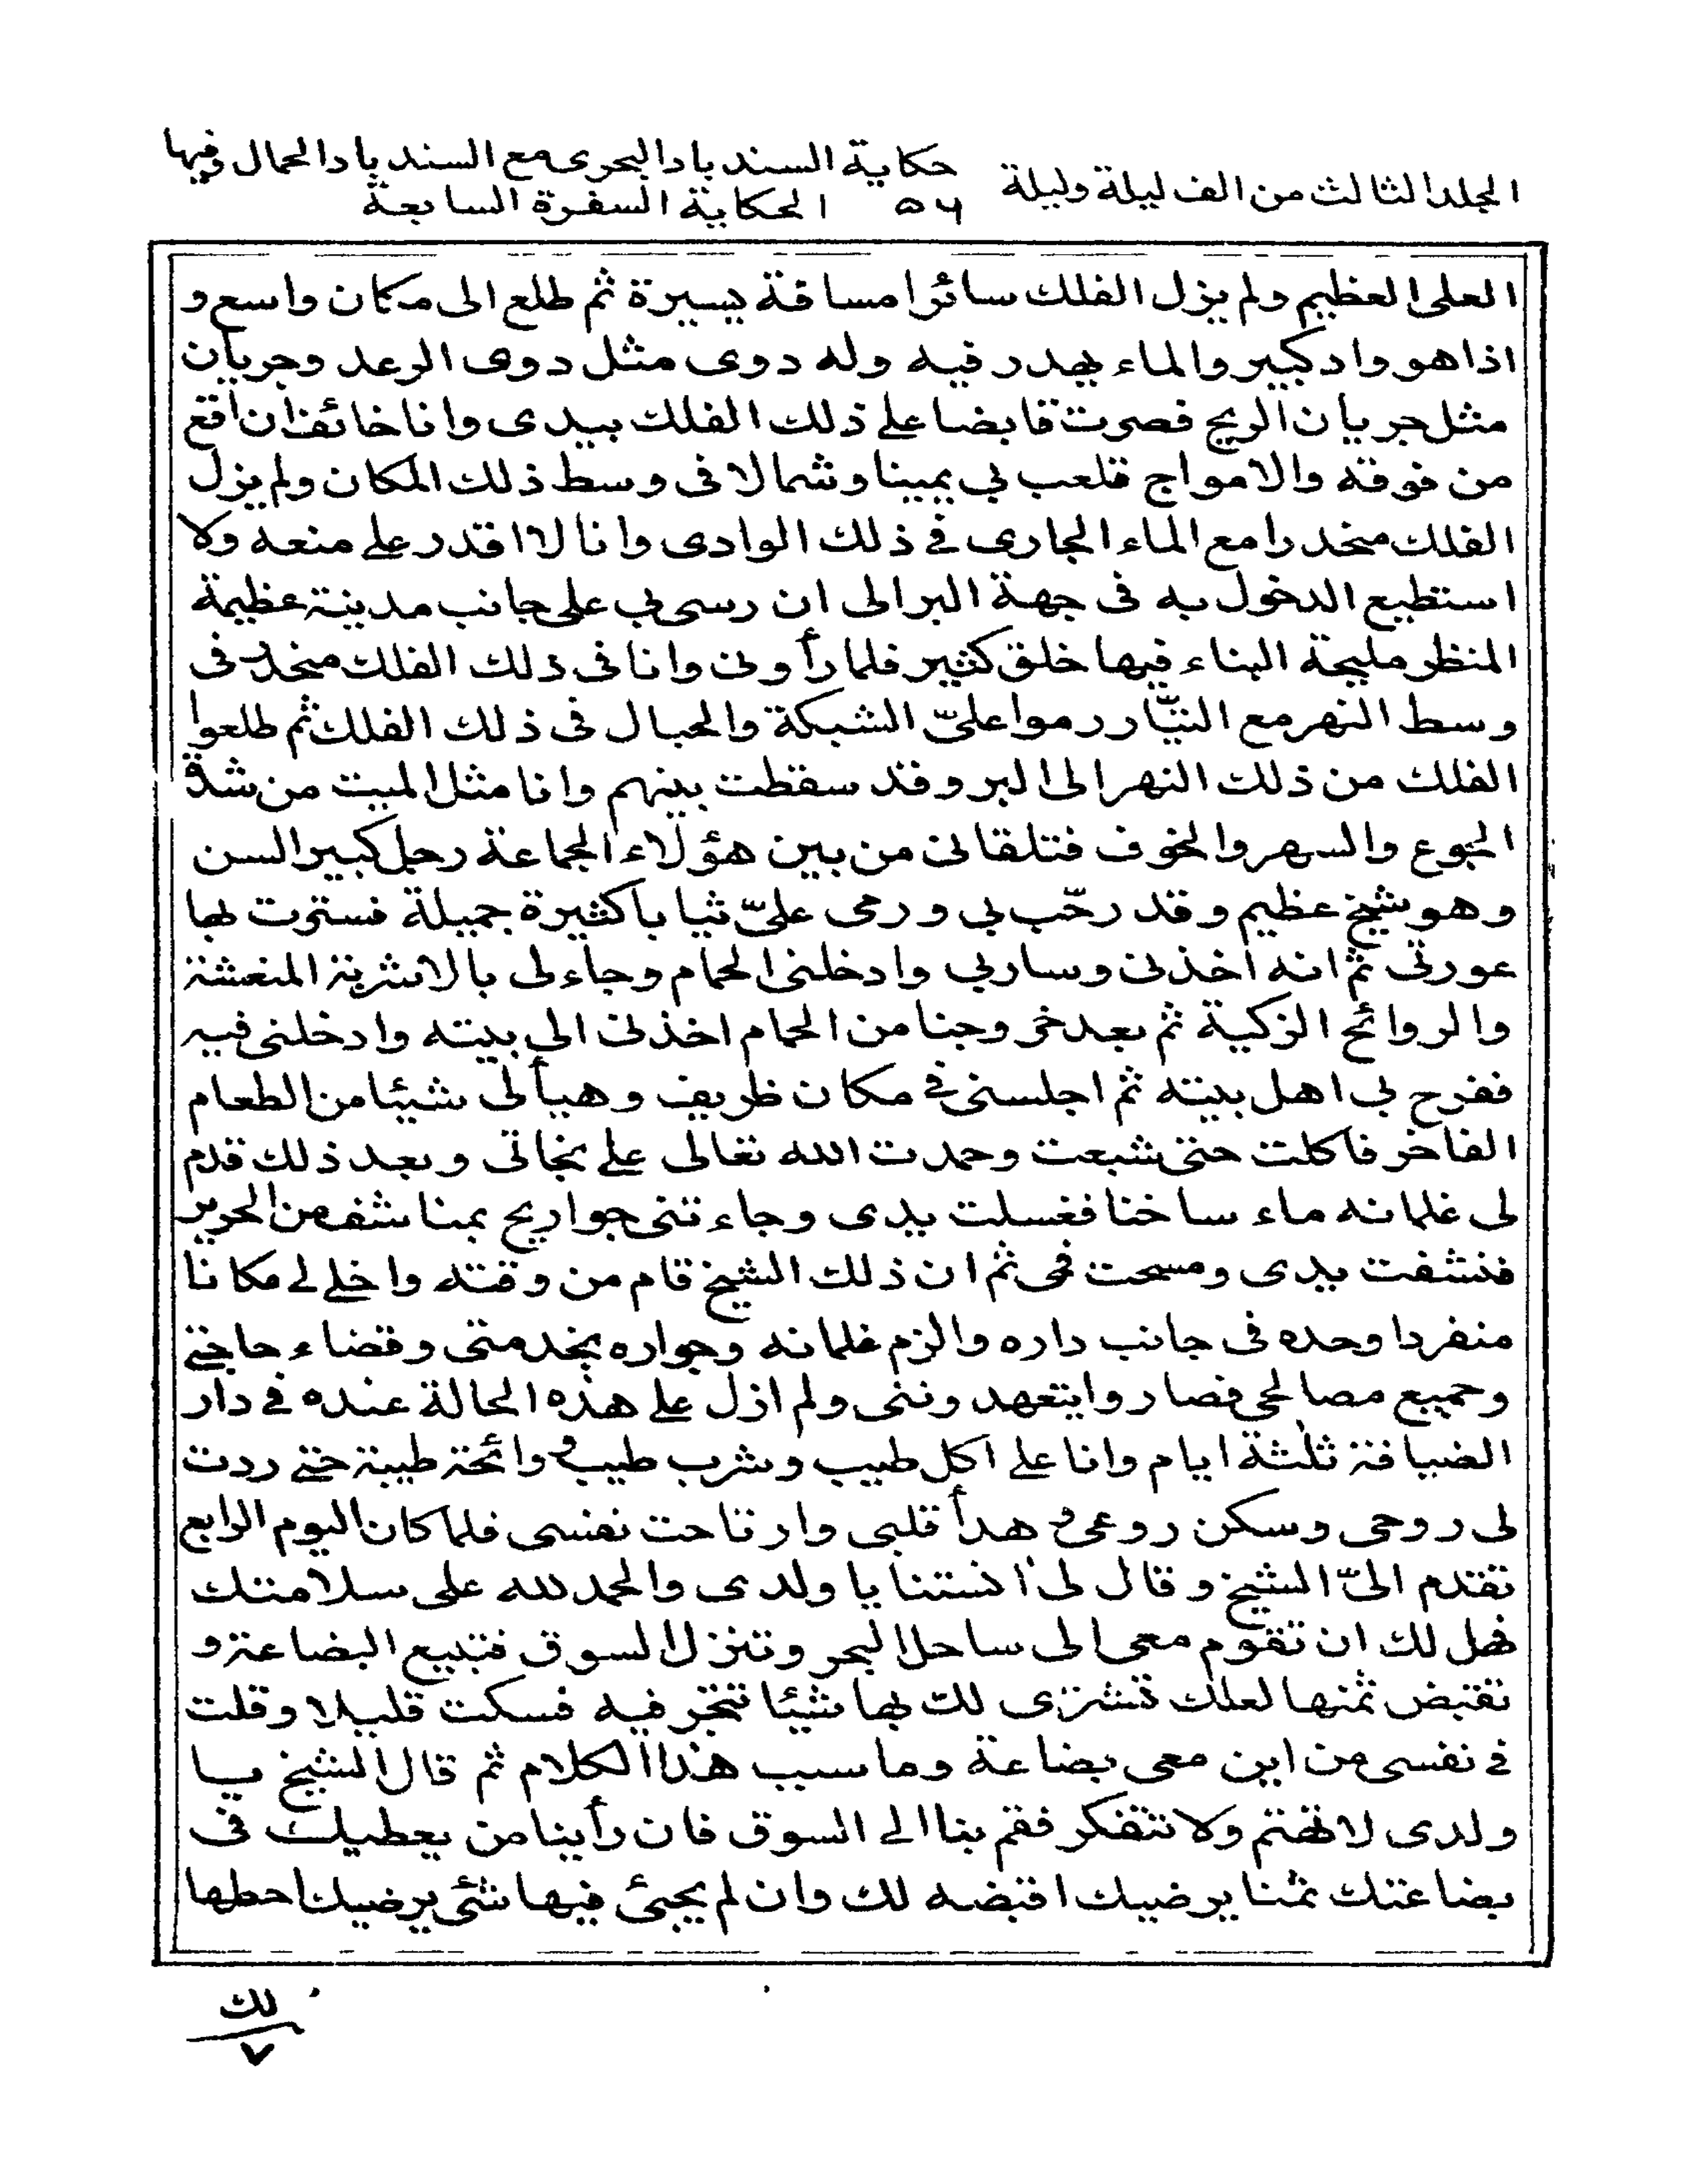 المجلد الثالث من الف ليلة وليلة
حكاية السندباد البحرى مع السندباد الحمال وفيها
٥٦
الحكاية السفرة السابعة
العلى العظيم ولم يزل الفلك سائرا مسافة يسيرة ثم طلع الى مكان واسع و
اذا هو واد كبير والماء يهدر فيه وله دوى مثل دوى الرعد وجريان
مثل جريان الريح فصرت قابضا على ذلك الفلك بيدى وانا خائف ان اقع
من فوقه والامواج تلعب بي يمينا وشمالا فى وسط ذلك المكان ولم يزل
الفلك منحدرا مع الماء الجارى فى ذلك الوادى وانا لا اقدر على منعه ولا
استطيع الدخول به فى جهة البر الى ان رسى بي على جانب مدينة عظيمة
المنظر مليحة البناء فيها خلق كثير فلما رأونى وانا فى ذلك الفلك منحدر فى
وسط النهر مع التيّار رموا علىّ الشبكة والحبال فى ذلك الفلك ثم طلعوا
الفلك من ذلك النهر الى البر وقد سقطت بينهم وانا مثل الميت من شدة
الجوع والسهر والخوف فتلقانى من بين هؤلاء الجماعة رجل كبير السن
وهو شيخ عظيم وقد رحّب بي ورمى علىّ ثيابا كثيرة جميلة فسترت بها
عورتى ثم انه اخذنى وسار بي وادخلنى الحمام وجاء لى بالاشربة المنعشة
والروائح الزكية ثم بعد خروجنا من الحمام اخذنى الى بيته وادخلنى فيه
ففرح بي اهل بيته ثم اجلسنى فى مكان ظريف وهيأ لى شيئا من الطعام
الفاخر فاكلت حتى شبعت وحمدت الله تعالى على نجاتى وبعد ذلك قدم
لى غلمانه ماء ساخنا فغسلت يدى وجاءتنى جواريح بمناشف من الحرير
فنشفت يدى ومسحت فمى ثم ان ذلك الشيخ قام من وقته واخلى لى مكانا
منفردا وحده فى جانب داره والزم غلمانه وجواره بخدمتى وقضاء حاجتى
وجميع مصالحى فصاروا يتعهدوننى ولم ازل على هذه الحالة عنده فى دار
الضيافة ثلثة ايام وانا على اكل طيب وشرب طيب ورائحة طيبة حتى ردت
لى روحى وسكن روعى و هدأ قلبى وارتاحت نفسى فلما كان اليوم الرابع
تقدم الىّ الشيخ وقال لى انستنا يا ولدى والحمد لله على سلامتك
فهل لك ان تقوم معى الى ساحل البحر وتنزل السوق فتبيع البضاعة و
تقبض ثمنها لعلك تشترى لك بها شيئا تتجر فيه فسكت قليلا وقلت
فى نفسى من اين معى بضاعة وما سبب هذا الكلام ثم قال الشيخ يا
ولدى لا تهتم ولا تتفكر فقم بنا الى السوق فان رأينا من يعطيك فى
بضاعتك ثمنا يرضيك اقبضه لك وان لم يجئ فيها شئ يرضيك احطها
لك
٧